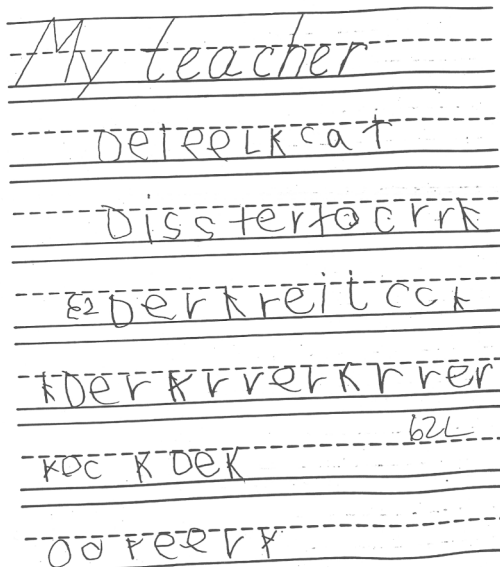 My teacher
DeleeLkcat
Disstertocrrk
62Derkreitcck
kDerkrverkrrer
62L
koc koek
Oofeerk